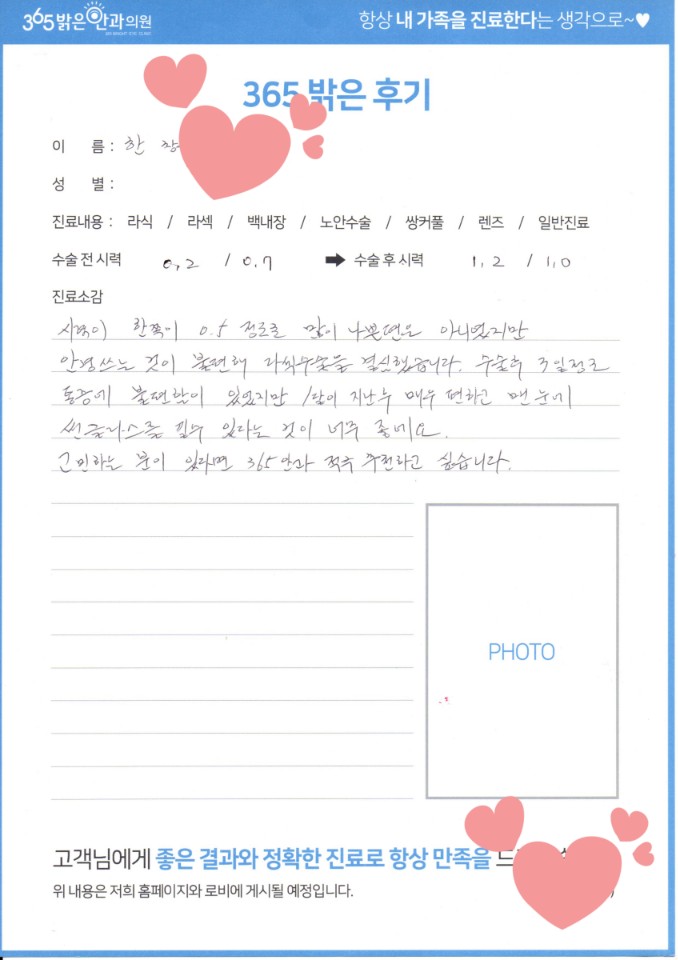 365 밝은안과의원
항상 내 가족을 진료한다는 생각으로~♥
365 밝은 후기
이 름 : 한 창
성 별 :
진료내용 : 라식 / 라섹 / 백내장 / 노안수술 / 쌍커풀 / 렌즈 / 일반진료
수술 전 시력 0.2 / 0.7 ➡ 수술 후 시력 1.2 / 1.0
진료소감
시력이 한쪽이 0.5 정도로 많이 나쁜편은 아니였지만
안경쓰는 것이 불편해 라식수술을 결심했습니다. 수술후 3일정도
통증에 불편함이 있었지만 1달이 지난후 매우 편하고 맨눈에
썬글라스를 낄수 있다는 것이 너무 좋네요.
고민하는 분이 있다면 365안과 적극 추천하고 싶습니다.
PHOTO
고객님에게 좋은 결과와 정확한 진료로 항상 만족을 드
위 내용은 저희 홈페이지와 로비에 게시될 예정입니다.